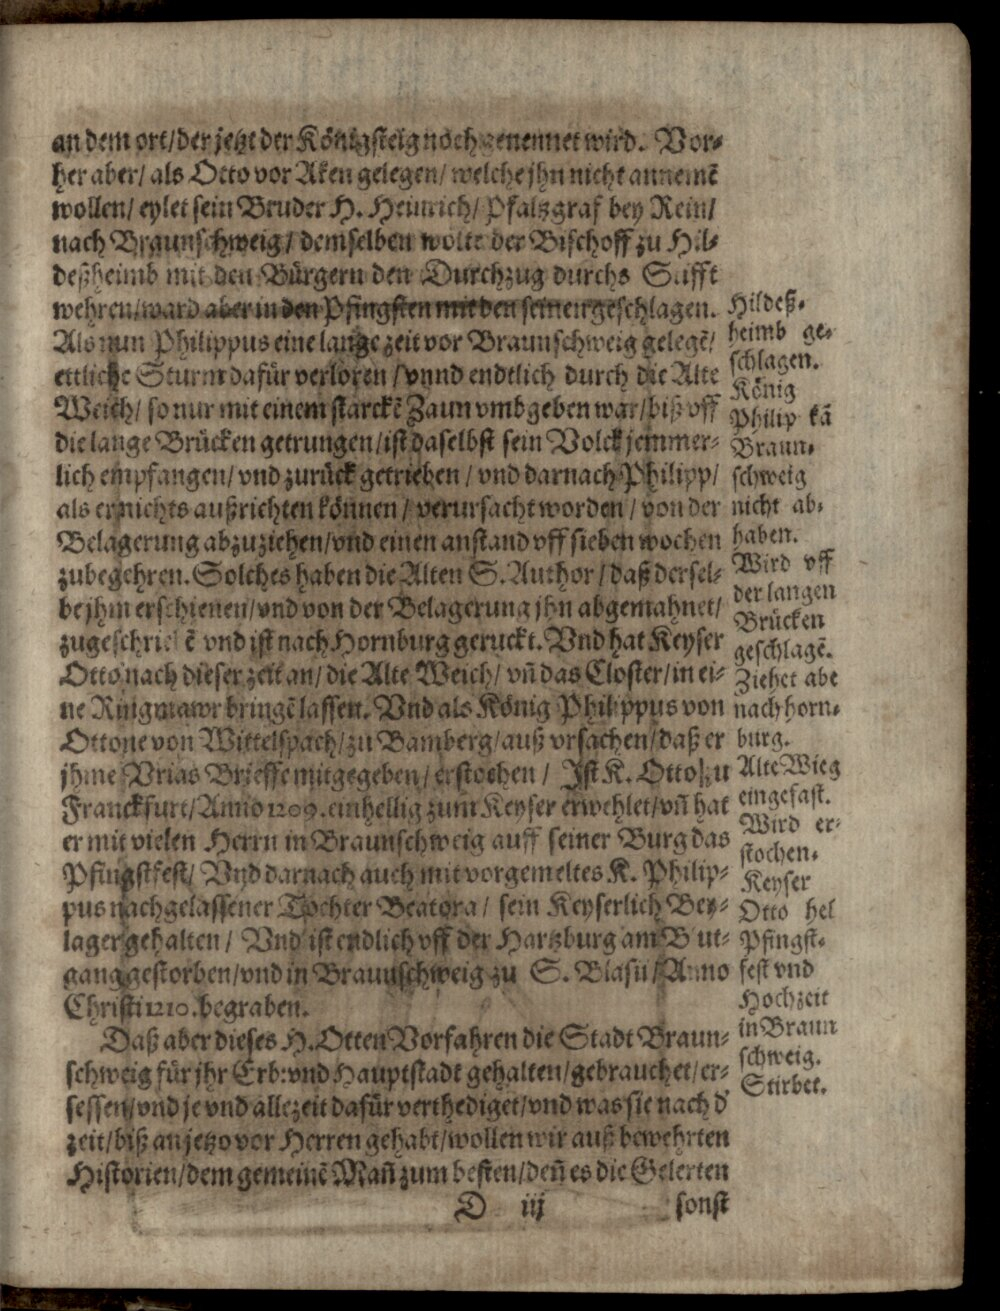 an dem ort/der jetzt der Königsteig noch genennet wird. Vor⸗
her aber/ als Otto vor Aken gelegen/ welche jhn nicht annemē
wollen/ eylet sein Bruder H. Heinrich/ Pfalzgraf bey Rein/
nach Braunschweig/ demselben wolte der Bischoff zu Hil⸗
deßheimb mit den Bürgern den Durchzug durchs Stifft
wehren/ward aber in den Pfingsten mit den seinen geschlagen.
Als nun Philippus eine lange zeit vor Braunschweig gelegē/
ettliche Sturm dafür verloren/vnnd endtlich durch die Alte
Weich/ so nur mit einem starckē Zaun vmbgeben war/biß vff
die lange Brücken getrungen/ist daselbst sein Volck jemmer⸗
lich empfangen/ vnd zurück getrieben/ vnd darnach Philipp/
als er nichts außrichten können/ verursacht worden/ von der
Belagerung abzuziehen/vnd einen anstand vff sieben wochen
zubegehren. Solches haben die Alten S. Author/ daß dersel⸗
be jhm erschienen/vnd von der Belagerung jhn abgemahnet/
zugeschriebē vnd ist nach Hornburg geruckt. Vnd hat Keyser
Otto nach dieser zeit an/ die Alte Weich/ vñ das Closter/in ei⸗
ne Ringmawr bringē lassen. Vnd als König Philippus von
Ottone von Wittelspach/zu Bamberg/auß vrsachen/daß er
jhme Vrias Brieffe mitgegeben/ erstochen/ Ist K. Otto/zu
Franckfurt/Anno 1209. einhellig zum Keyser erwehlet/vñ hat
er mit vielen Herrn in Braunschweig auff seiner Burg das
Pfingstfest/ Vnd darnach auch mit vorgemeltes K. Philip⸗
pus nachgelassener Tochter Beatora/ sein Keyserlich Bey⸗
lager gehalten/ Vnd ist endlich vff der Hartzburg am B ut⸗
gang gestorben/vnd in Braunschweig zu S. Blasii/Anno
Christi 1210. begraben.
Daß aber dieses H. Otten Vorfahren die Stadt Braun⸗
schweig für jhr Erb: vnd Hauptstadt gehalten/gebrauchet/er⸗
sessen/vnd je vnd allezeit dafür verthediget/vnd was sie nach d'
zeit/biß an jetzo vor Herren gehabt/wollen wir auß bewehrten
Historien/dem gemeinē Mañ zum besten/deñ es die Gelerten
D iij sonst
Hildeß⸗
heimb ge⸗
schlagen.
König
Philip kā
Braun⸗
schweig
nicht ab⸗
haben.
Wird vff
der langen
Brücken
geschlagē.
Ziehet abe
nach horn⸗
burg.
Alte Wieg
eingefast.
Wird er⸗
stochen.
Keyser
Otto hel
Pfingst⸗
fest vnd
Hochzeit
in Braun
schweig.
Stirbet.